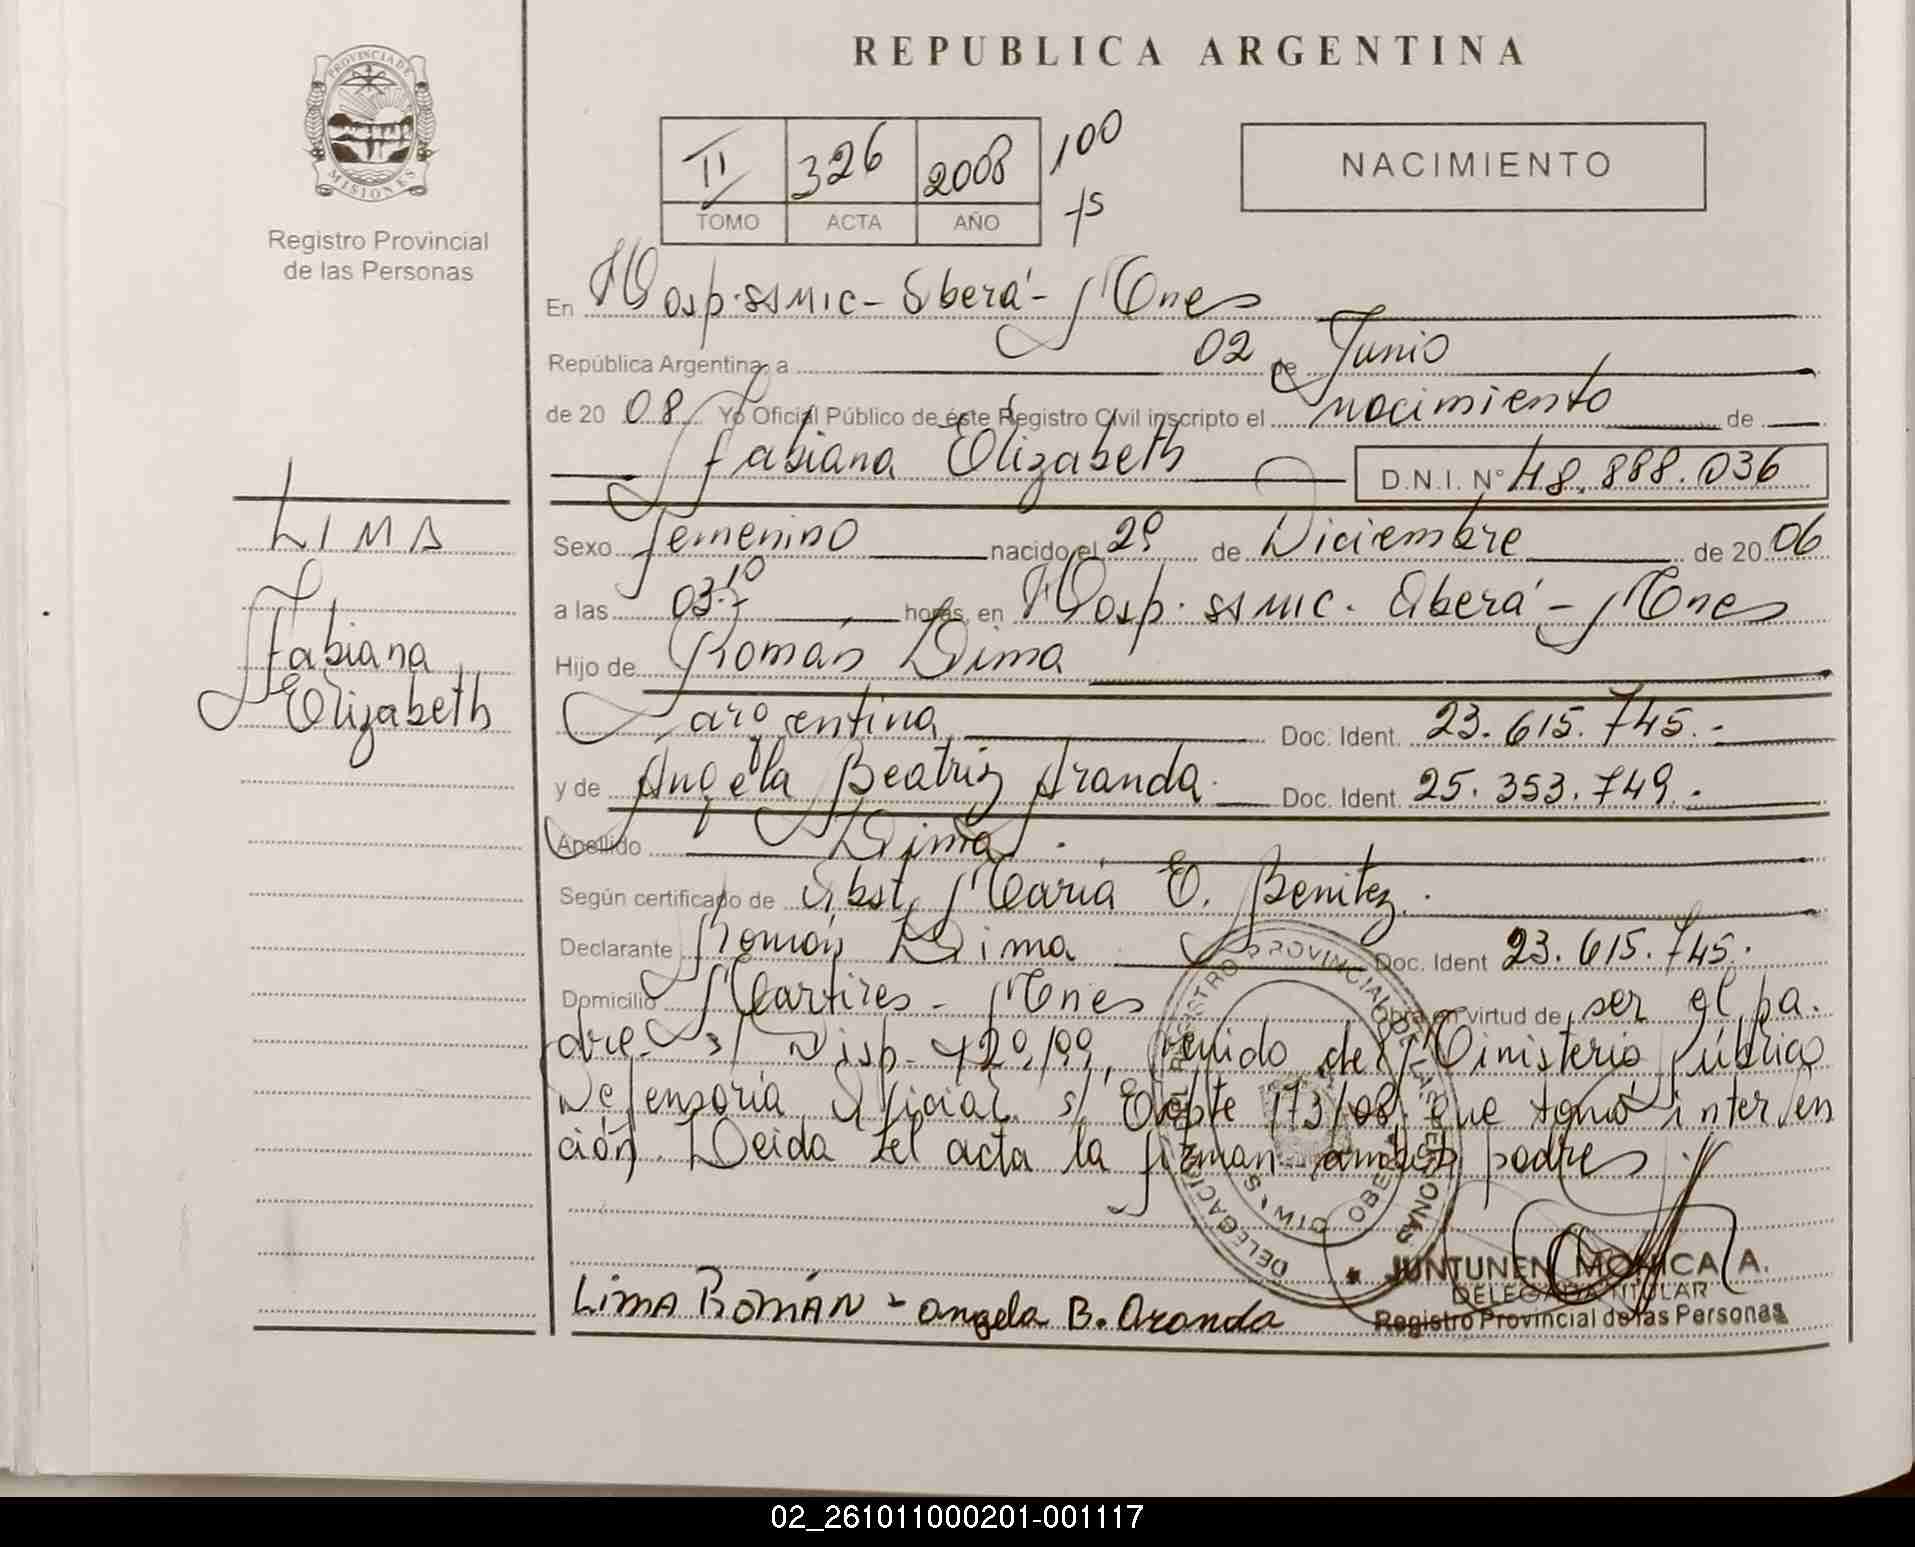 REPUBLICA ARGENTINA
PROVINCIA DE MISIONES
Registro Provincial
de las Personas
II 326 2008 100
TOMO ACTA AÑO fs
NACIMIENTO
En Hosp. SSMIC - Oberá - Mnes
República Argentina, a 02 de Junio
de 2008 Yo Oficial Público de éste Registro Civil inscripto el nacimiento de
Fabiana Elizabeth D.N.I. N° 48.888.036
LIMA
Fabiana
Elizabeth
Sexo femenino nacido el 29 de Diciembre de 2006
a las 03:10 horas, en Hosp. SSMIC. Oberá - Mnes
Hijo de Román Lima
argentina Doc. Ident. 23.615.745.-
y de Angela Beatriz Aranda. Doc. Ident. 25.353.749.-
Apellido Lima.
Según certificado de Obst. María E. Benitez.
Declarante Román Lima Doc. Ident 23.615.745.
Domicilio Martires - Mnes Obra en virtud de ser el pa.
dre - s/ Disp. 429/99, venido del Ministerio Público
Defensoría Oficial s/ Expte 173/08 que tomó interven
ción. Leida el acta la firman ambos padres.
REGISTRO PROVINCIAL DE LAS PERSONAS
DELEGACION
OBERA
LIMA ROMÁN - Angela B. Aranda
JUNTUNEN MONICA A.
DELEGADA TITULAR
Registro Provincial de las Personas
02_261011000201-001117